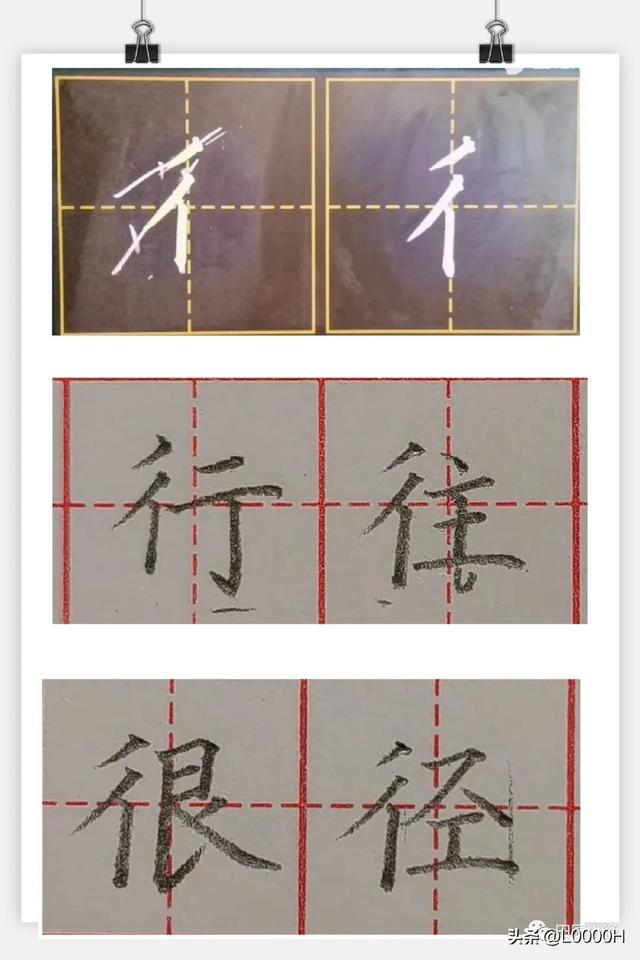 彳 彳
行 往
很 径
头条 @L0000H